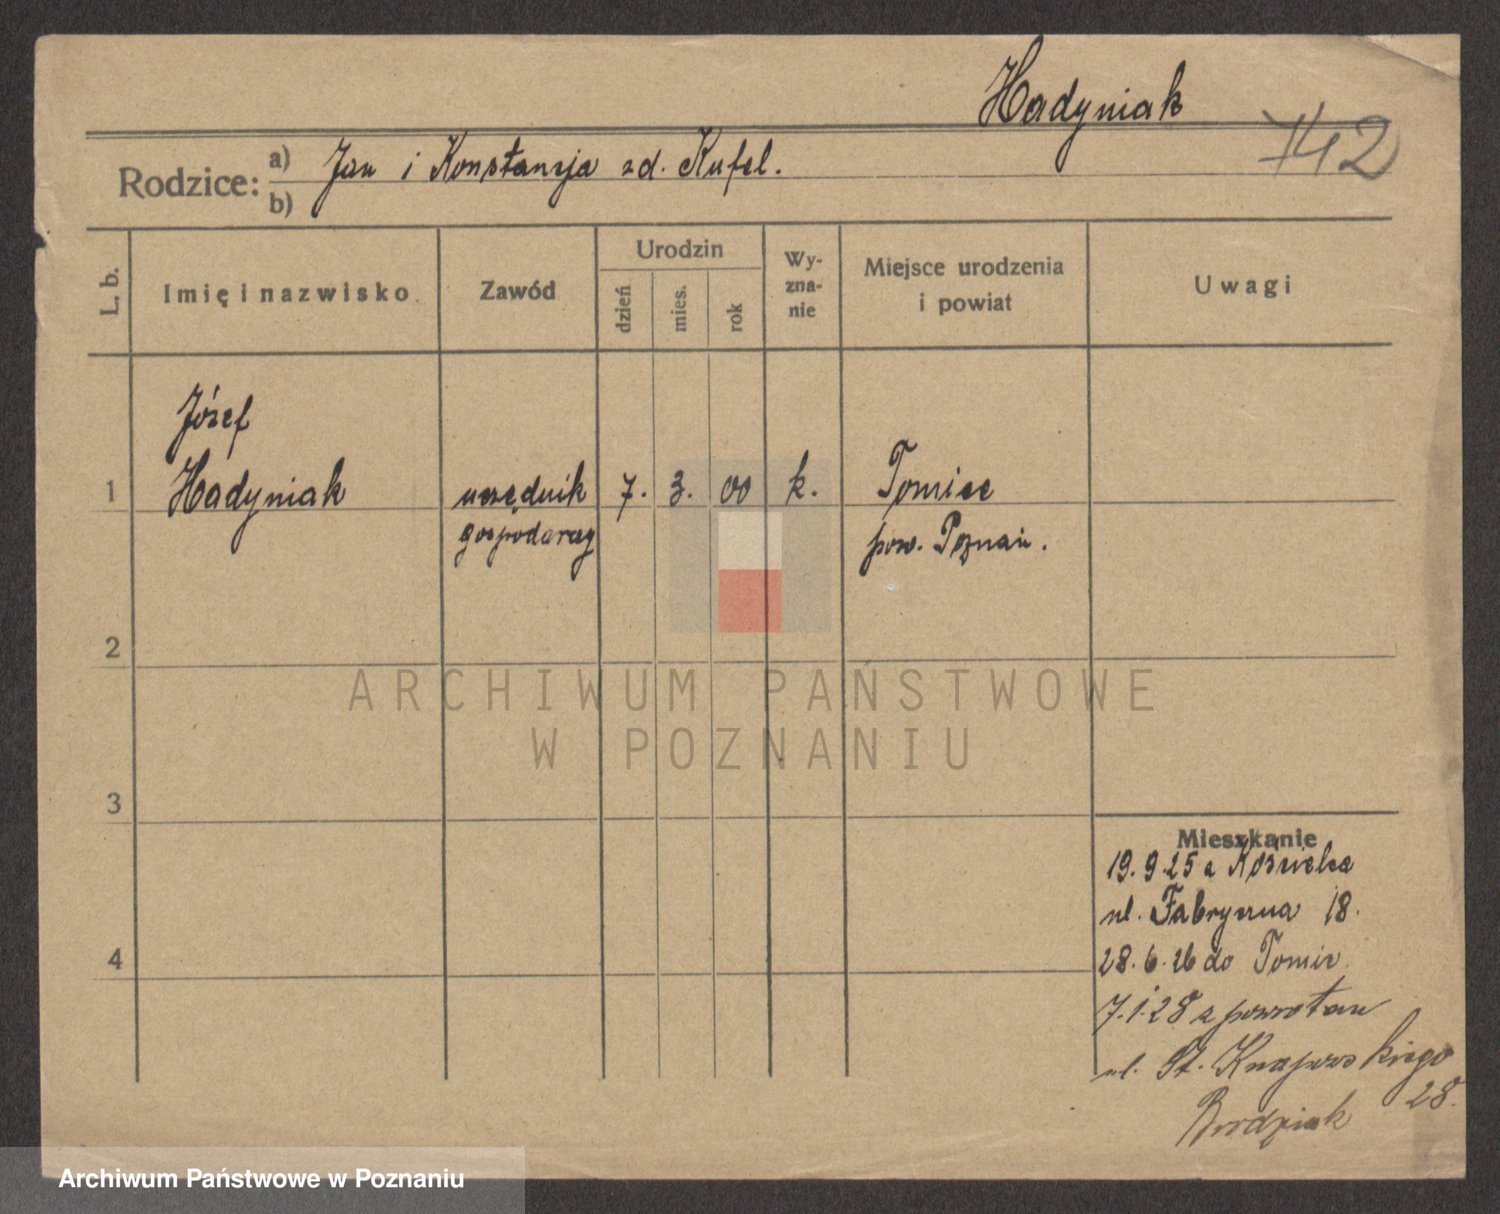 Hadyniak
742
Rodzice:
a) Jan i Konstancja zd. Kufel.
b)
L. b.
Imię i nazwisko
Zawód
Urodzin
dzień
mies.
rok
Wy-
zna-
nie
Miejsce urodzenia
i powiat
Uwagi
Józef
1 Hadyniak urzędnik 7. 3. 00 k. Tomice
gospodarczy pow. Poznań.
2
ARCHIWUM PAŃSTWOWE
W POZNANIU
3
Mieszkanie
19.9.25 z Kościelca
ul. Fabryczna 18.
4
28.6.26 do Tomic
7.1.28 z powrotem
ul. St. Knapowskiego
28.
Archiwum Państwowe w Poznaniu